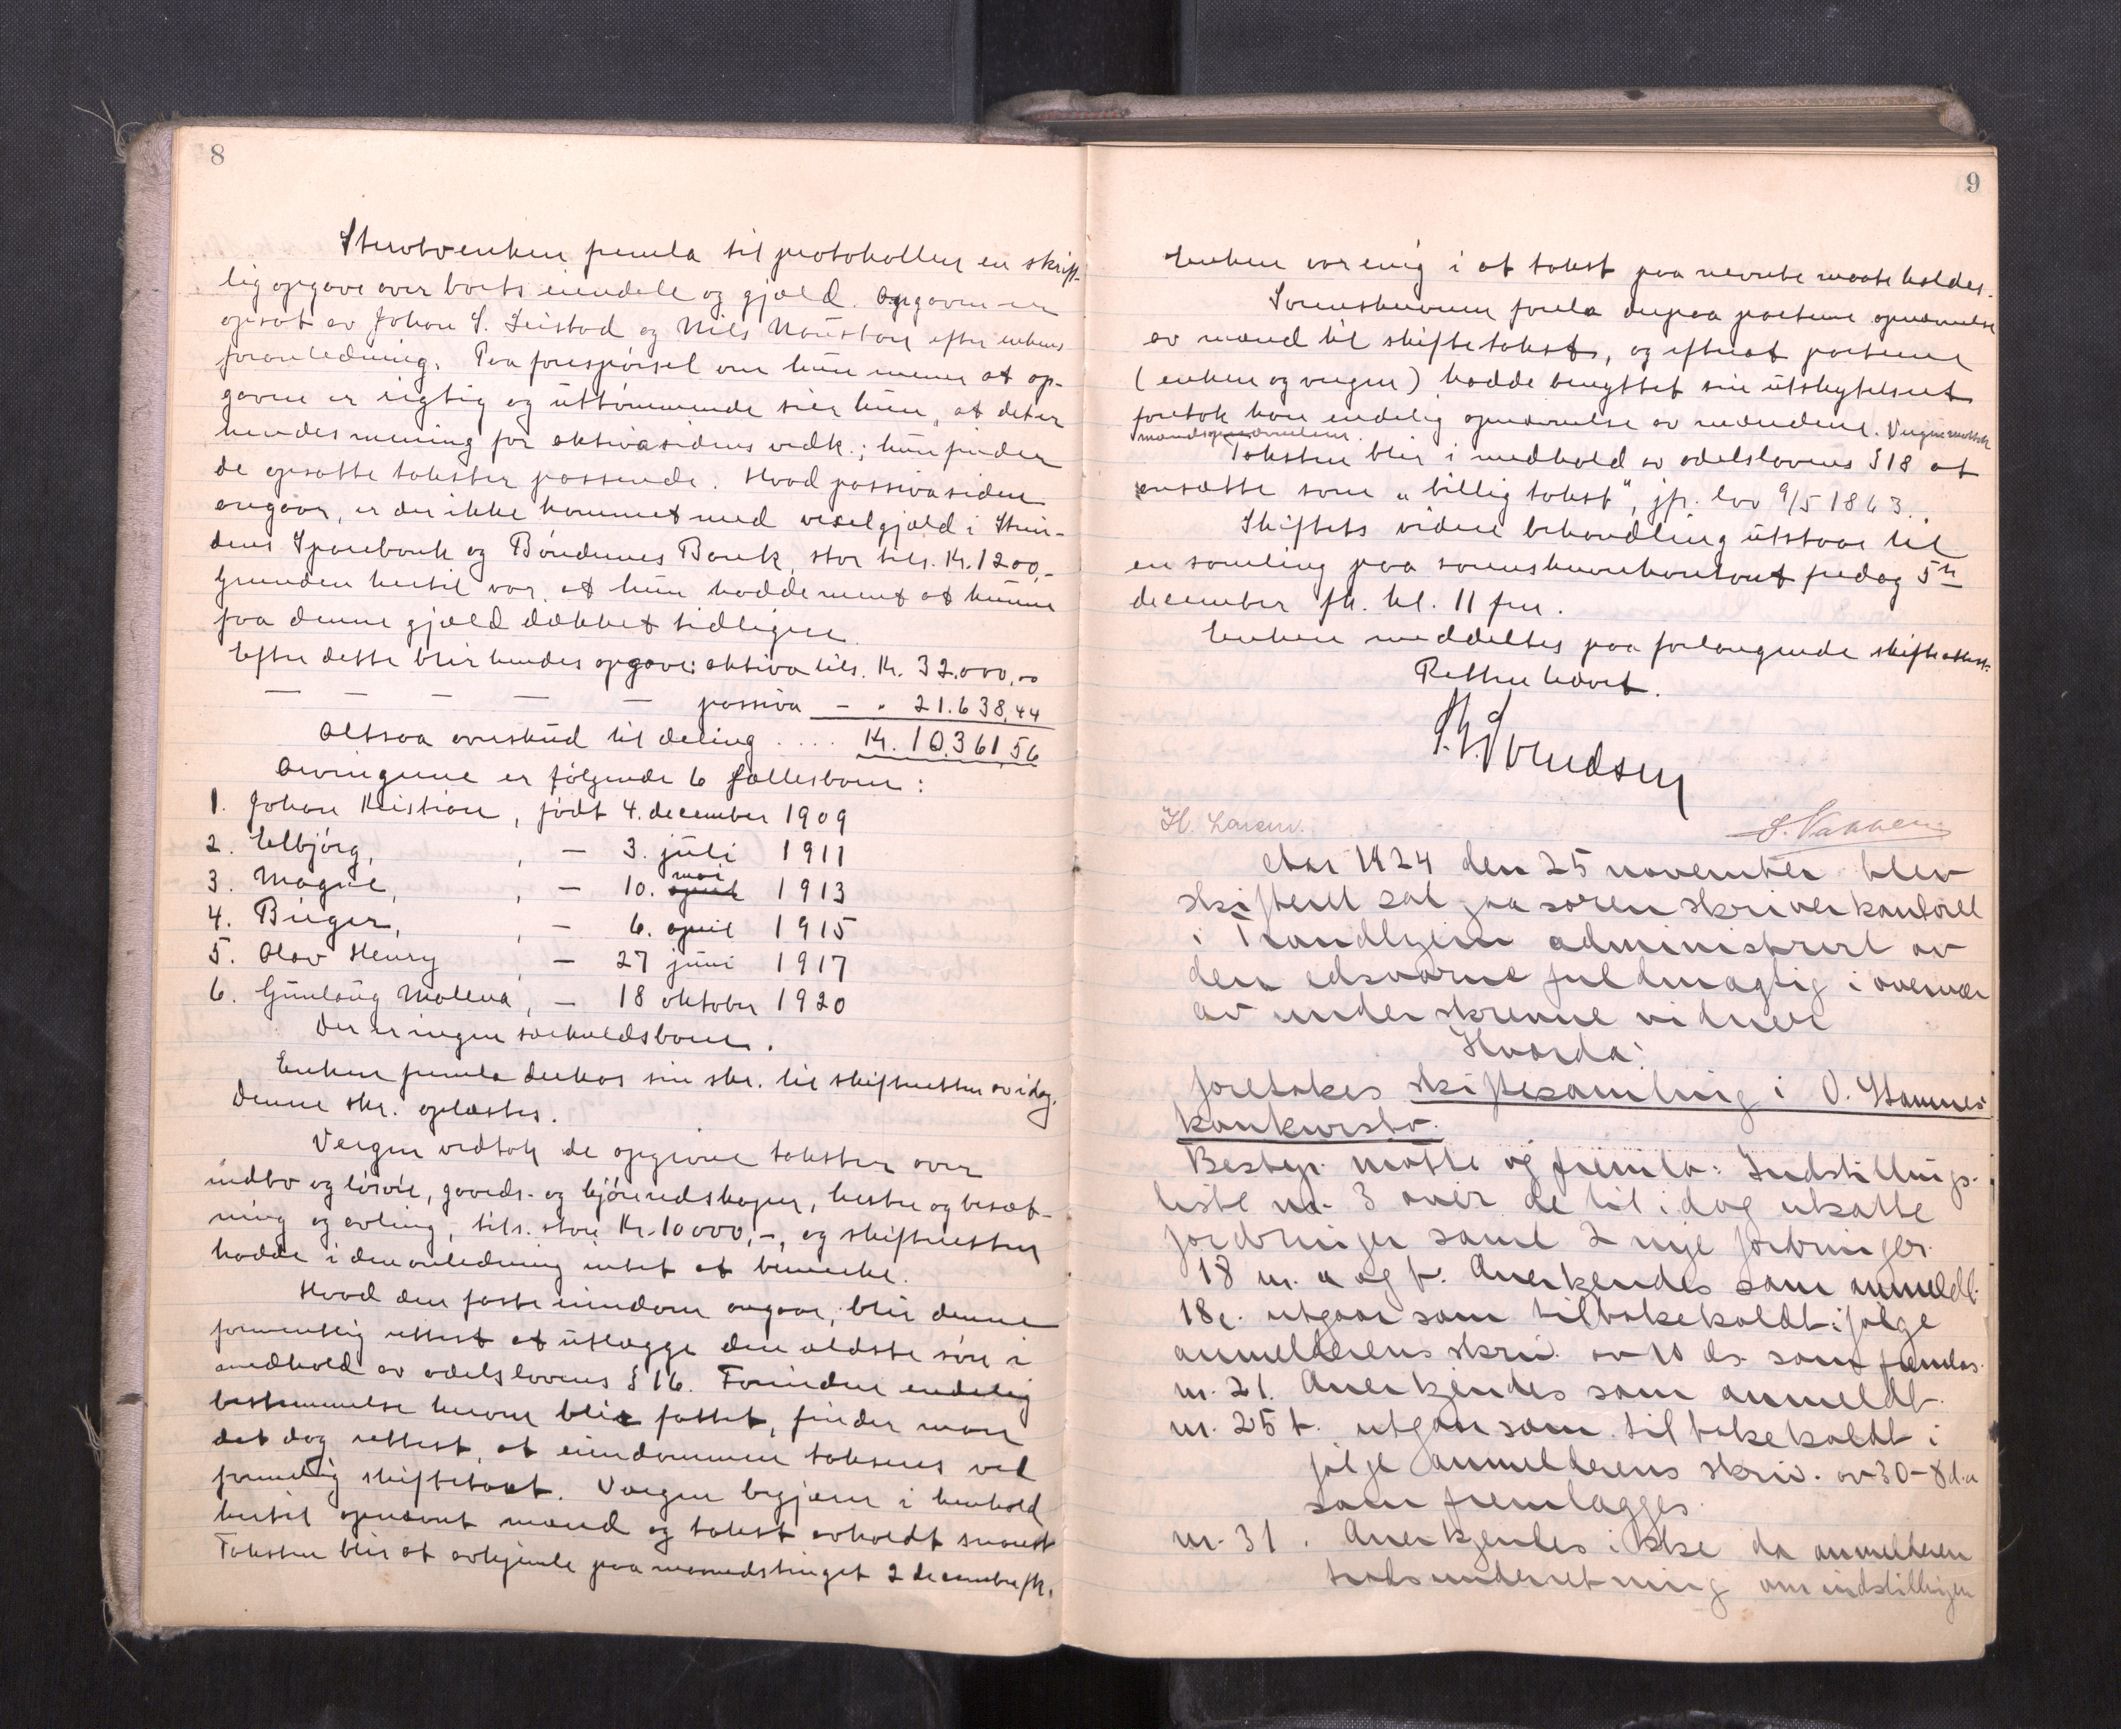 8
Sterbvenken fremla til protokollen en skrift-
lig opgave over boets eiendele og gjæld. Opgaven er
opsat av Johan S. Leistad og Nils Naustan efter enkens
foranledning. Paa forespørsel om hun mener at op-
gaven er rigtig og uttømmende sier hun, at det er
hendes mening for aktivasidens vedk.; hun finder
de opsatte takster passende. Hvad passivasiden
angaar, er der ikke kommet med vexelgjæld i Strin-
dens Sparebank og Bøndernes Bank, stor tils. Kr. 1200,-
Grunden hertil var, at hun hadde ment at kunne
faa denne gjæld dækket tidligere.
Efter dette blir hendes opgave: aktiva tils. Kr. 32.000,00
— — — — — passiva - " 21.638,44
Altsaa overskud til deling .... Kr. 10.361,56
Arvingene er følgende 6 fællesbarn:
1. Johan Kristian, født 4. december 1909
2. Elbjørg, , — 3. juli 1911
3. Magne, , — 10. april mai 1913
4. Birger, , — 6. april 1915
5. Olav Henry , — 27 juni 1917
6. Gunlaug Malena, — 18 oktober 1920
Der er ingen særkuldsbarn.
Enken fremla derhos sin skr. til skifteretten av idag.
Denne skr. oplæstes.
Vergen vedtok de opgivne takster over
indbo og løsøre, gaards- og kjøreredskaper, hester og besæt-
ning og avling, tils. stor Kr. 10000,-, og skifteretten
hadde i den anledning intet at bemerke.
Hvad den faste eiendom angaar, blir denne
formentlig rettest at utlægge den ældste søn i
medhold av odelslovens § 16. Forinden endelig
bestemmelse herom blir fattet, finder man
det dog rettest, at eiendommen takseres ved
formelig skiftetakst. Vergen begjærer i henhold
hertil opnævnt mænd og takst avholdt snarest
Taksten blir at avhjemle paa maanedstinget 2 december fk.
9
Enken var enig i at takst paa nevnte maate holdes.
Sorenskriveren forela derpaa partene opnævnelse
av mænd til skiftetakst, og efterat partene
(enken og vergen) hadde benyttet sin utskytelsesret
foretok han endelig opnævnelse av mændene. Vergen mottok
mandsopnævnelsen.
Taksten blir i medhold av odelslovens § 18 at
ansætte som "billig takst", jfr. lov 9/5 1863.
Skiftets videre behandling utstaar til
en samling paa sorenskriverkontoret fredag 5te
december fk. kl. 11 fm.
Enken meddeltes paa forlangende skifteattest.
Retten hævet.
Svendsen
H. Larsen. S. Vakken
Aar 1924 den 25 november blev
skifterett sat paa sorenskriverkontoret
i Trondhjem administrert av
den edsvorne fuldmægtig i overvær
av underskrevne vidner
Hvorda:
foretokes skiftesamling i O. Hammes
konkursbo.
Bestyr. møtte og fremla: Indstillings-
liste nr. 3 over de til idag utsatte
fordringer samt 2 nye fordringer.
18 nr. a og b. Anerkjendes som anmeldt.
18c. utgaar som tilbakekaldt ifølge
anmelderens skriv. av 10 ds. som fremlas.
nr. 21. Anerkjendes som anmeldt.
nr. 25 b. utgaar som tilbakekaldt i
følge anmelderens skriv. av 30-8 d.a
som fremlægges.
nr. 31. Anerkjendes ikke da anmelderen
trods underretning om indstillingen